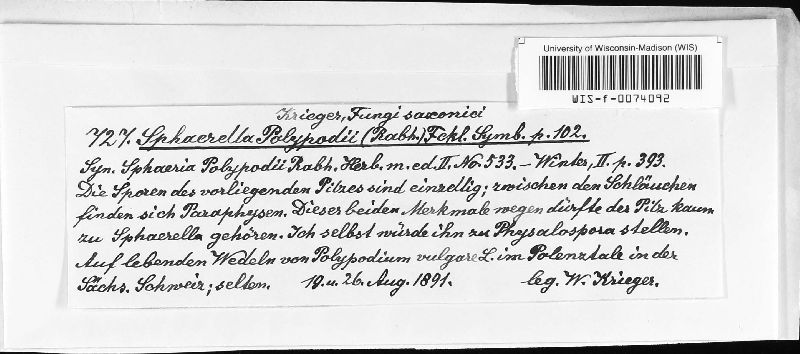 University of Wisconsin-Madison (WIS)
WIS-f-0074092
Krieger, Fungi saxonici
727. Sphaerella Polypodii (Rabh.) Fckl. Symb. p. 102.
Syn. Sphaeria Polypodii Rabh. Herb. m. ed. II. No. 533. – Winter, II. p. 393.
Die Sporen des vorliegenden Pilzes sind einzellig; zwischen den Schläuchen
finden sich Paraphysen. Dieser beiden Merkmale wegen dürfte der Pilz kaum
zu Sphaerella gehören. Ich selbst würde ihn zu Physalospora stellen.
Auf lebenden Wedeln von Polypodium vulgare L. im Polenztale in der
Sächs. Schweiz; selten. 19. u. 26. Aug. 1891. leg. W. Krieger.